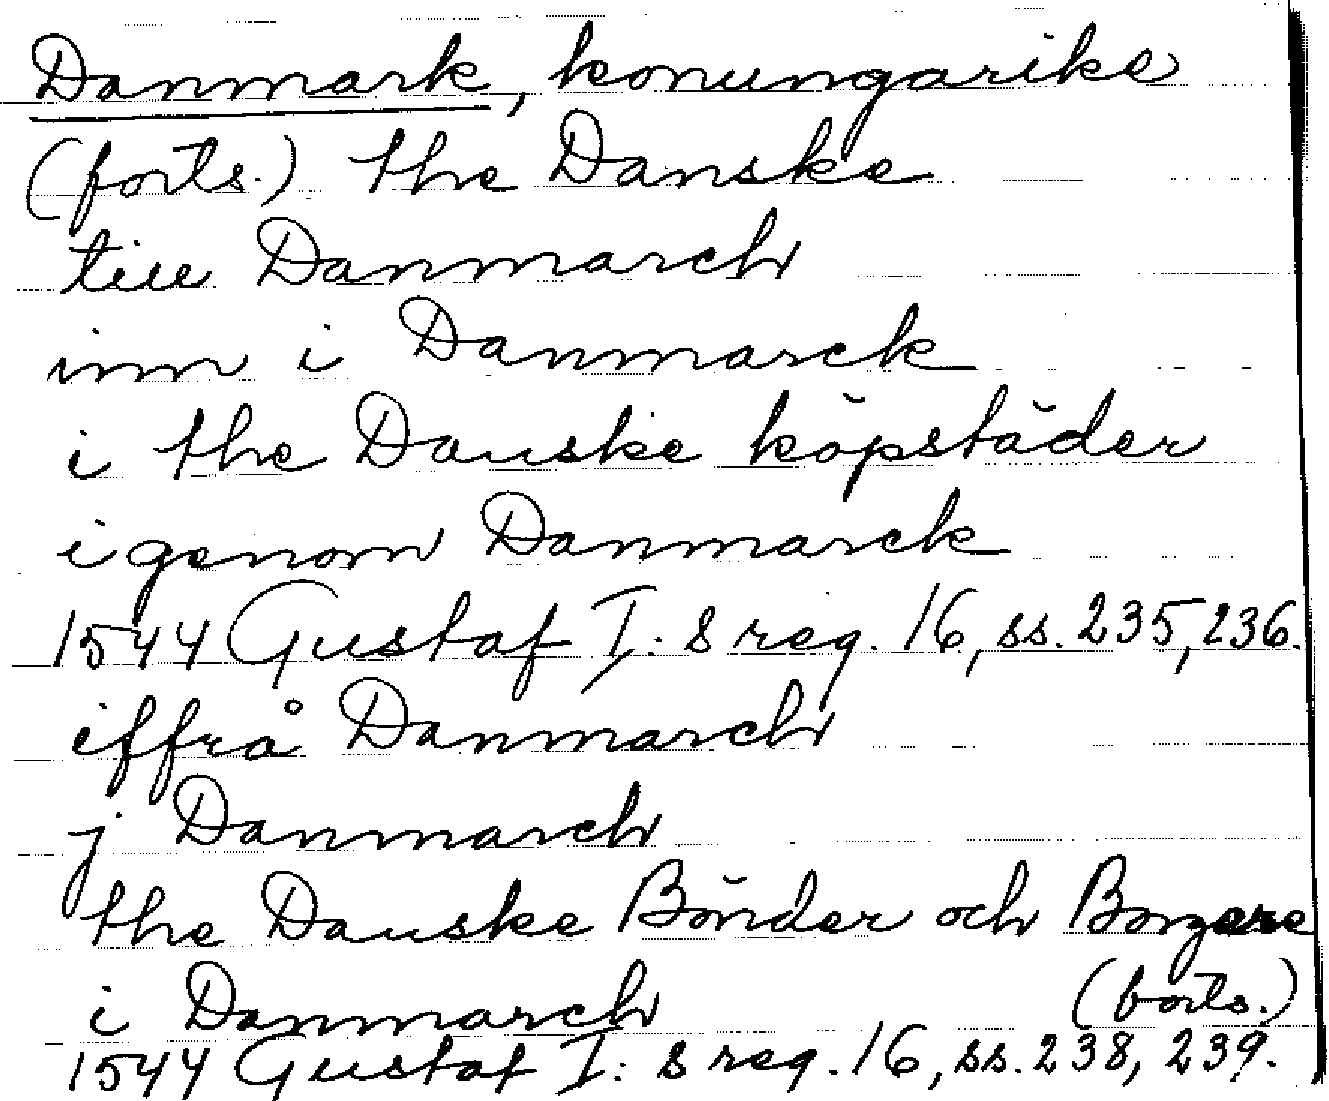 Danmark, konungarike
(forts.) the Danske
till Danmarch
inn i Danmarck
i the Danske köpstäder
igenom Danmarck
1544 Gustaf I:s reg. 16, ss. 235, 236.
iffrå Danmarch
j Danmarch
the Danske Bönder och Borgere
i Danmarch (forts.)
1544 Gustaf I:s reg. 16, ss. 238, 239.